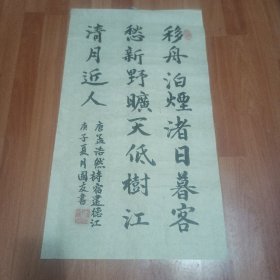 移舟泊煙渚日暮客
愁新野曠天低樹江
清月近人
唐孟浩然詩宿建德江
庚子夏月國友書